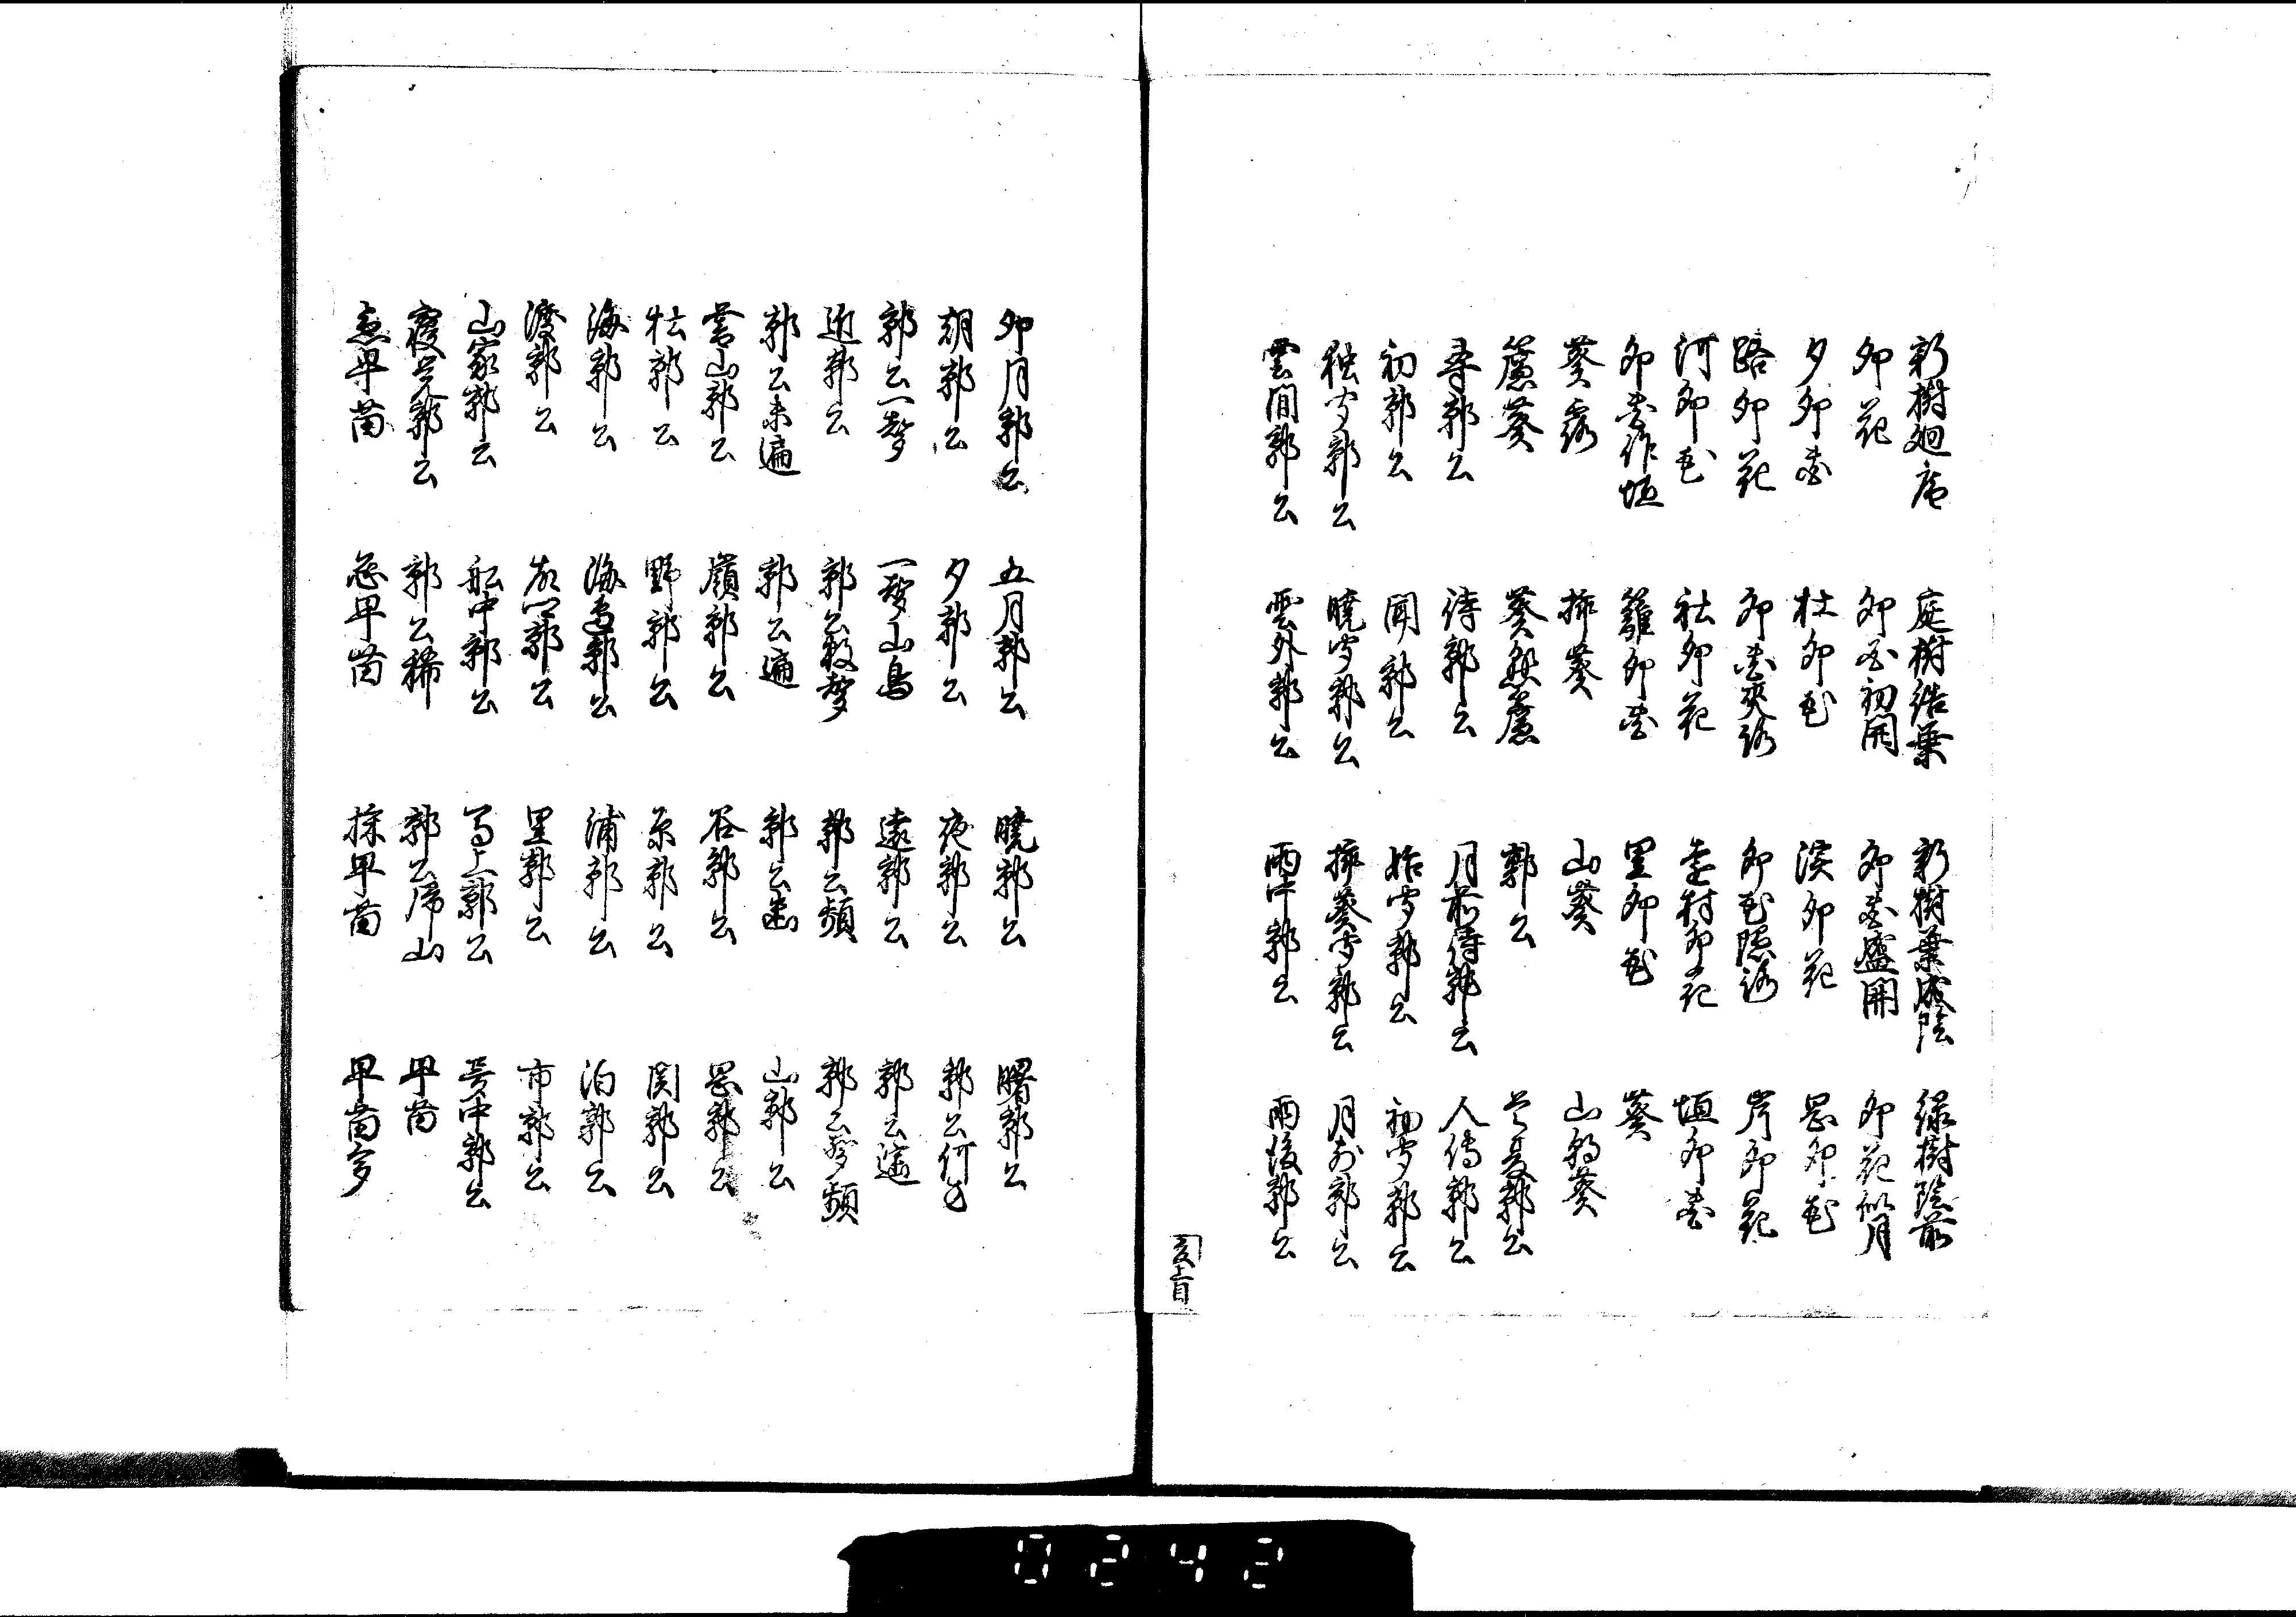 新樹廻庵　庭樹結葉　新樹葉成陰　緑樹陰前
卯花　卯花初開　卯花盛開　卯花似月
夕卯花　杜卯花　渓卯花　岡卯花
路卯花　卯花夾路　卯花隠路　岸卯花
河卯花　社卯花　遠村卯花　垣卯花
卯花作垣　籬卯花　里卯花　葵
葵露　挿葵　山葵　山朝葵
簾葵　葵懸簾　郭公　郭公
尋郭公　待郭公　月前待郭公　人伝郭公
初郭公　聞郭公　始聞郭公　初聞郭公
独聞郭公　暁聞郭公　挿葵聞郭公　月前郭公
雲間郭公　雲外郭公　雨中郭公　雨後郭公
夏上目
卯月郭公　五月郭公　暁郭公　曙郭公
朝郭公　夕郭公　夜郭公　郭公何方
郭公一声　一声山鳥　遠郭公　郭公遠
近郭公　郭公数声　郭公頻　郭公声頻
郭公未遍　郭公遍　郭公幽　山郭公
山郭公　嶺郭公　谷郭公　岡郭公
杜郭公　野郭公　原郭公　関郭公
海郭公　海辺郭公　浦郭公　泊郭公
渡郭公　故郷郭公　里郭公　市郭公
山家郭公　船中郭公　馬上郭公　雲中郭公
寝覚郭公　郭公稀　郭公帰山　早苗
急早苗　早苗　採早苗　早苗多
0242